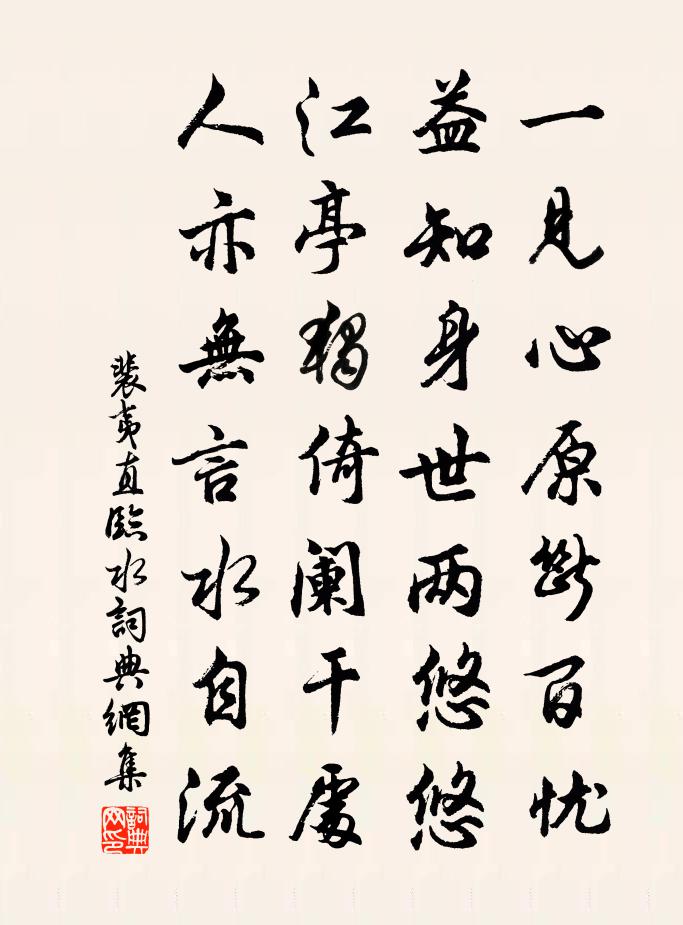 一見心原斷百忧
益知身世两悠悠
江亭獨倚阑干處
人亦無言水自流
裴夷直臨水詞典網集
詞典网印